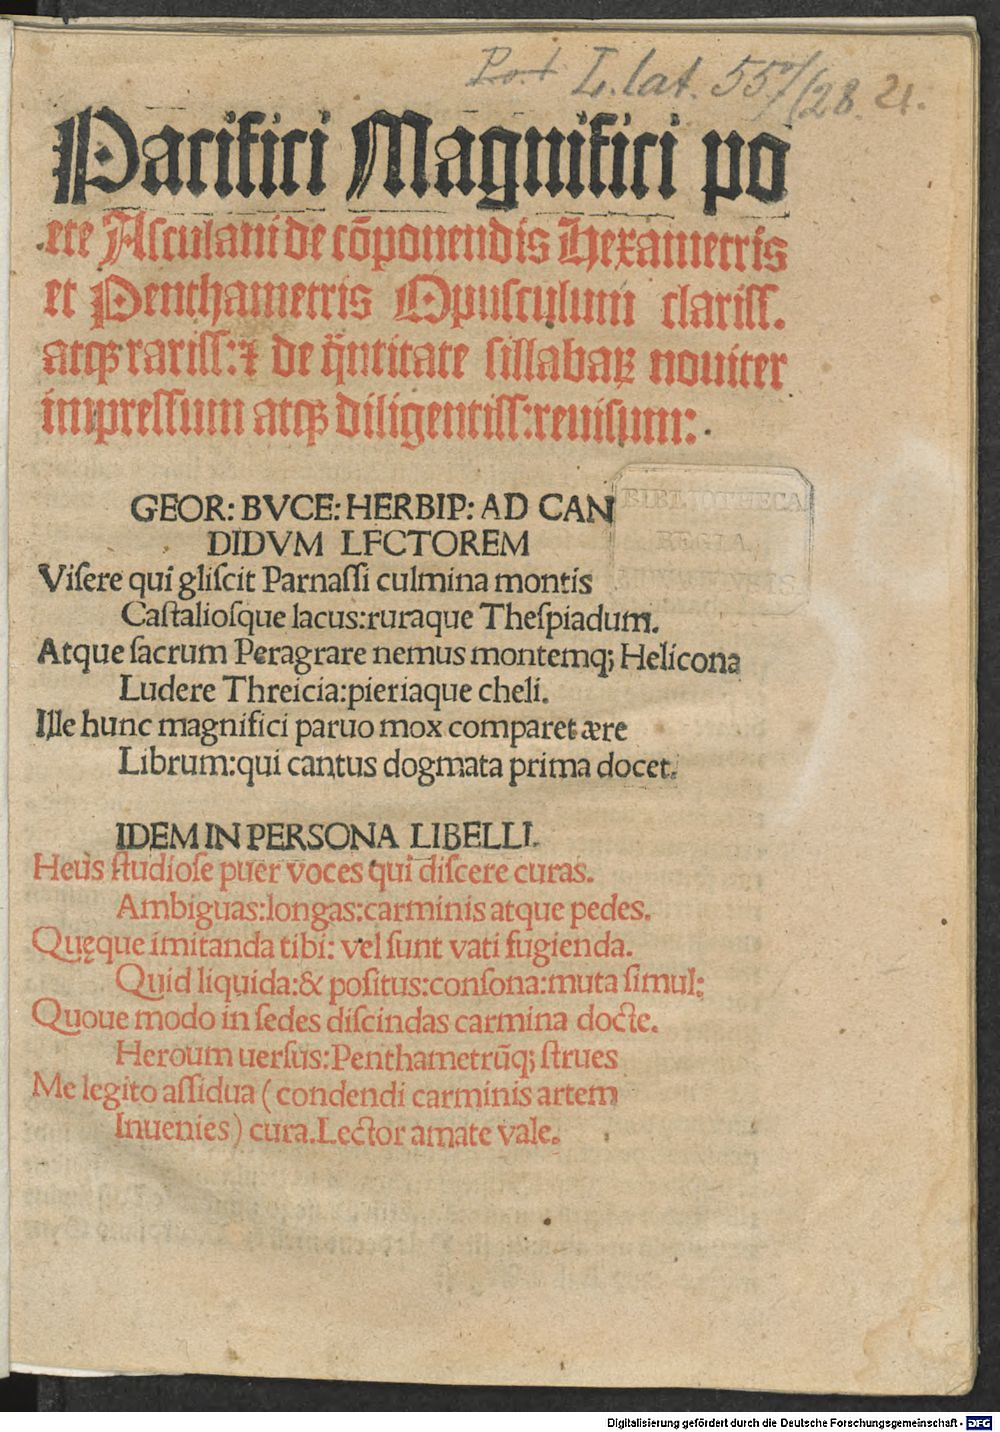 P.o.t L. lat. 557/(28. 21.
Pacifici Magnifici po
ete Asculani de cōponendis Hexametris
et Penthametris Opusculum clariss.
atqꝫ rariss: ⁊ de q̈ntitate sillabaꝝ noviter
impressum atqꝫ diligentiss: revisum:
GEOR: BVCE: HERBIP: AD CAN
DIDVM LECTOREM
Viſere qui gliſcit Parnaſſi culmina montis
Caſtalioſque lacus: ruraque Theſpiadum.
Atque ſacrum Peragrare nemus montemqꝫ Helicona
Ludere Threicia: pieriaque cheli.
Ille hunc magnifici paruo mox comparet ære
Librum: qui cantus dogmata prima docet.
BIBLIOTHECA
REGIA
IDEM IN PERSONA LIBELLI.
Heus ſtudioſe puer voces qui diſcere curas.
Ambiguas: longas: carminis atque pedes.
Quęque imitanda tibi: vel ſunt vati fugienda.
Quid liquida: & poſitus: conſona: muta ſimul:
Quoue modo in ſedes diſcindas carmina docte.
Heroum uerſus: Penthametrūqꝫ ſtrues
Me legito aſſidua (condendi carminis artem
Inuenies) cura. Lector amate vale.
Digitalisierung gefördert durch die Deutsche Forschungsgemeinschaft - DFG